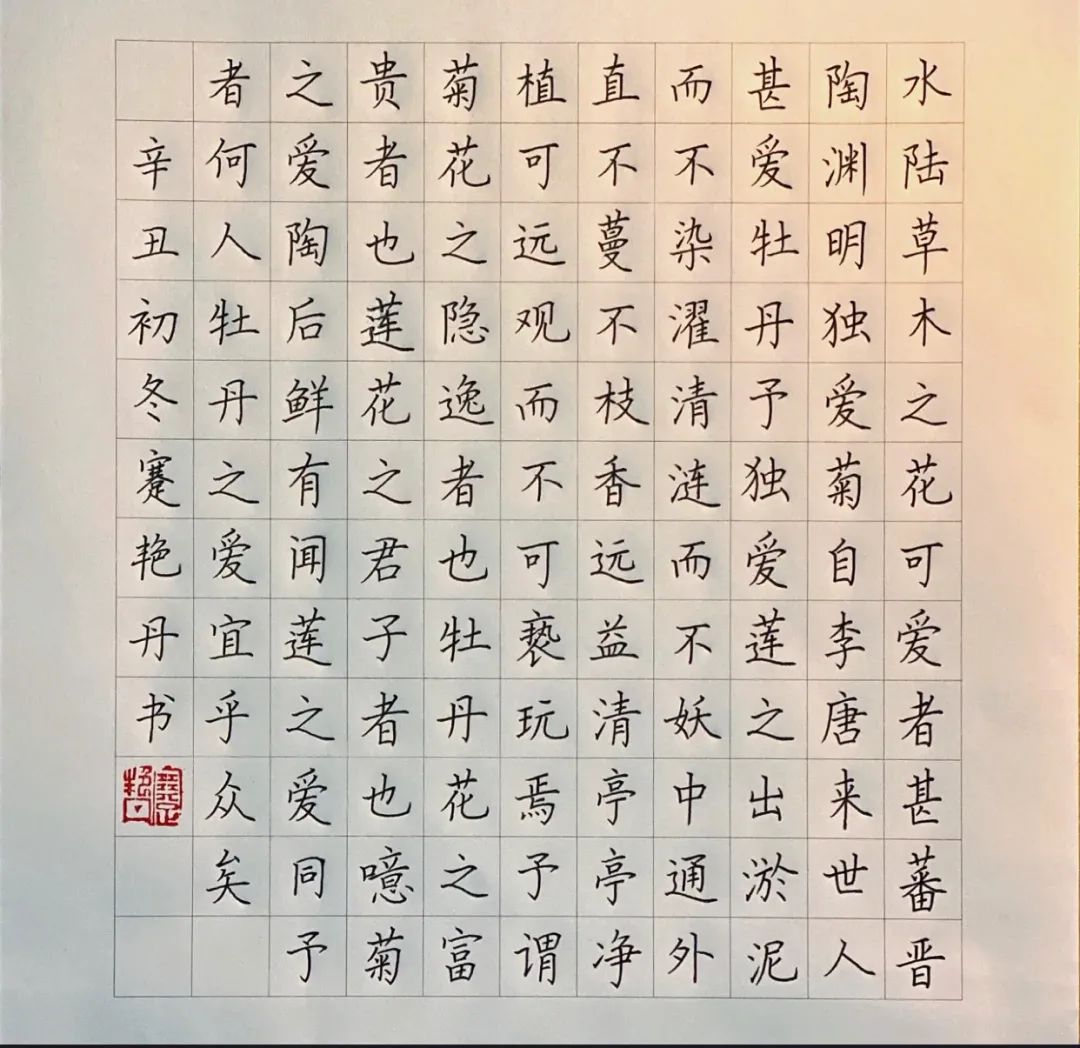 水陆草木之花可爱者甚蕃晋
陶渊明独爱菊自李唐来世人
甚爱牡丹予独爱莲之出淤泥
而不染濯清涟而不妖中通外
直不蔓不枝香远益清亭亭净
植可远观而不可亵玩焉予谓
菊花之隐逸者也牡丹花之富
贵者也莲花之君子者也噫菊
之爱陶后鲜有闻莲之爱同予
者何人牡丹之爱宜乎众矣
辛丑初冬蹇艳丹书